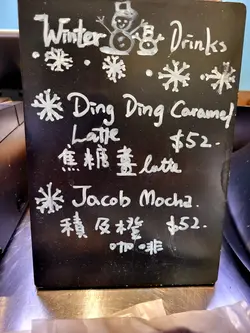 Winter Drinks
Ding Ding Caramel
Latte $52.
焦糖畫 latte
Jacob Mocha.
積及橙 $52.
咖啡